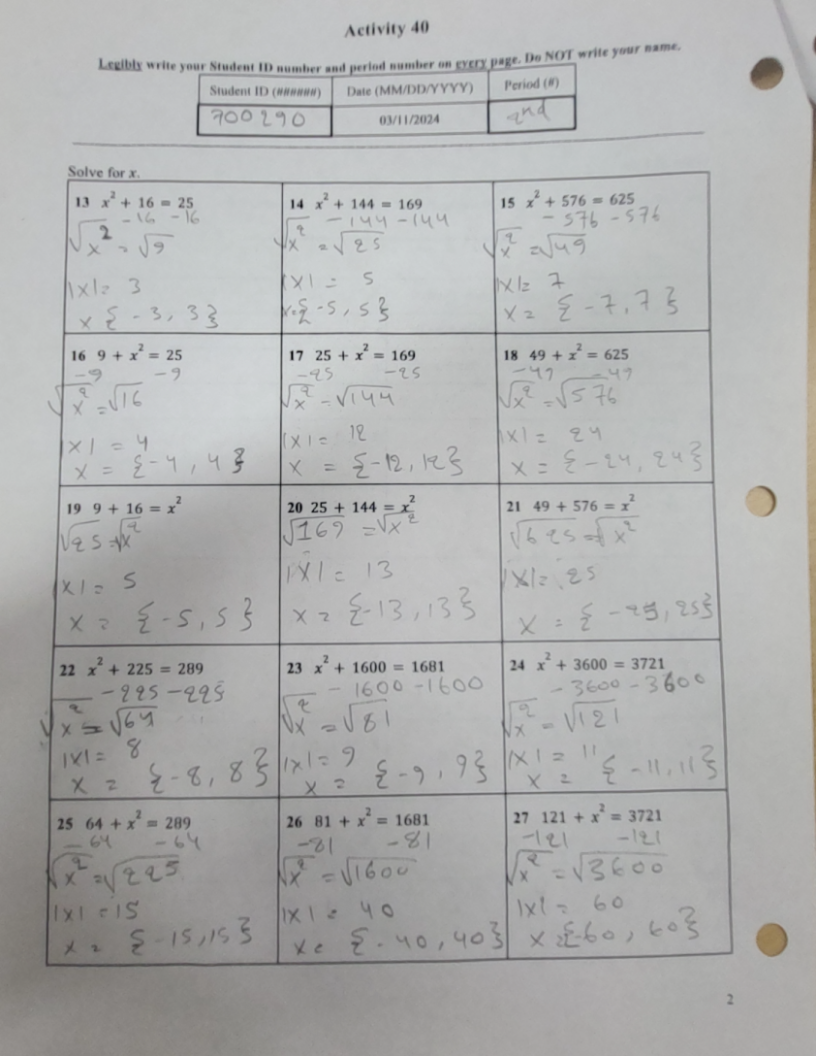 Activity 40
Legibly write your Student ID number and period number on every page. Do NOT write your name.
Student ID (######) Date (MM/DD/YYYY) Period (#)
700290 03/11/2024 2nd
Solve for x.
13 x² + 16 = 25
-16 -16
√x² = √9
|x| = 3
x {-3, 3}
14 x² + 144 = 169
-144 -144
√x² = √25
|x| = 5
x = {-5, 5}
15 x² + 576 = 625
-576 -576
√x² = √49
|x| = 7
x = {-7, 7}
16 9 + x² = 25
-9 -9
√x² = √16
|x| = 4
x = {-4, 4}
17 25 + x² = 169
-25 -25
√x² = √144
|x| = 12
x = {-12, 12}
18 49 + x² = 625
-49 -49
√x² = √576
|x| = 24
x = {-24, 24}
19 9 + 16 = x²
√25 = √x²
|x| = 5
x = {-5, 5}
20 25 + 144 = x²
√169 = √x²
|x| = 13
x = {-13, 13}
21 49 + 576 = x²
√625 = √x²
|x| = 25
x = {-25, 25}
22 x² + 225 = 289
-225 -225
√x² = √64
|x| = 8
x = {-8, 8}
23 x² + 1600 = 1681
-1600 -1600
√x² = √81
|x| = 9
x = {-9, 9}
24 x² + 3600 = 3721
-3600 -3600
√x² = √121
|x| = 11
x = {-11, 11}
25 64 + x² = 289
-64 -64
√x² = √225
|x| = 15
x = {-15, 15}
26 81 + x² = 1681
-81 -81
√x² = √1600
|x| = 40
x = {-40, 40}
27 121 + x² = 3721
-121 -121
√x² = √3600
|x| = 60
x = {-60, 60}
2